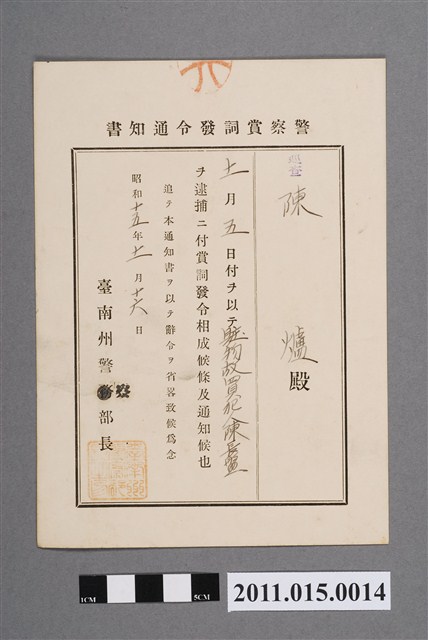 警察賞詞發令通知書
巡査 陳 爐 殿
十一月五日付ヲ以テ贓物故買犯陳
ヲ逮捕ニ付賞詞發令相成候條及通知候也
追テ本通知書ヲ以テ辭令ヲ省畧致候爲念
昭和十五年十一月十六日
臺南州警察部長
1CM
5CM
2011.015.0014